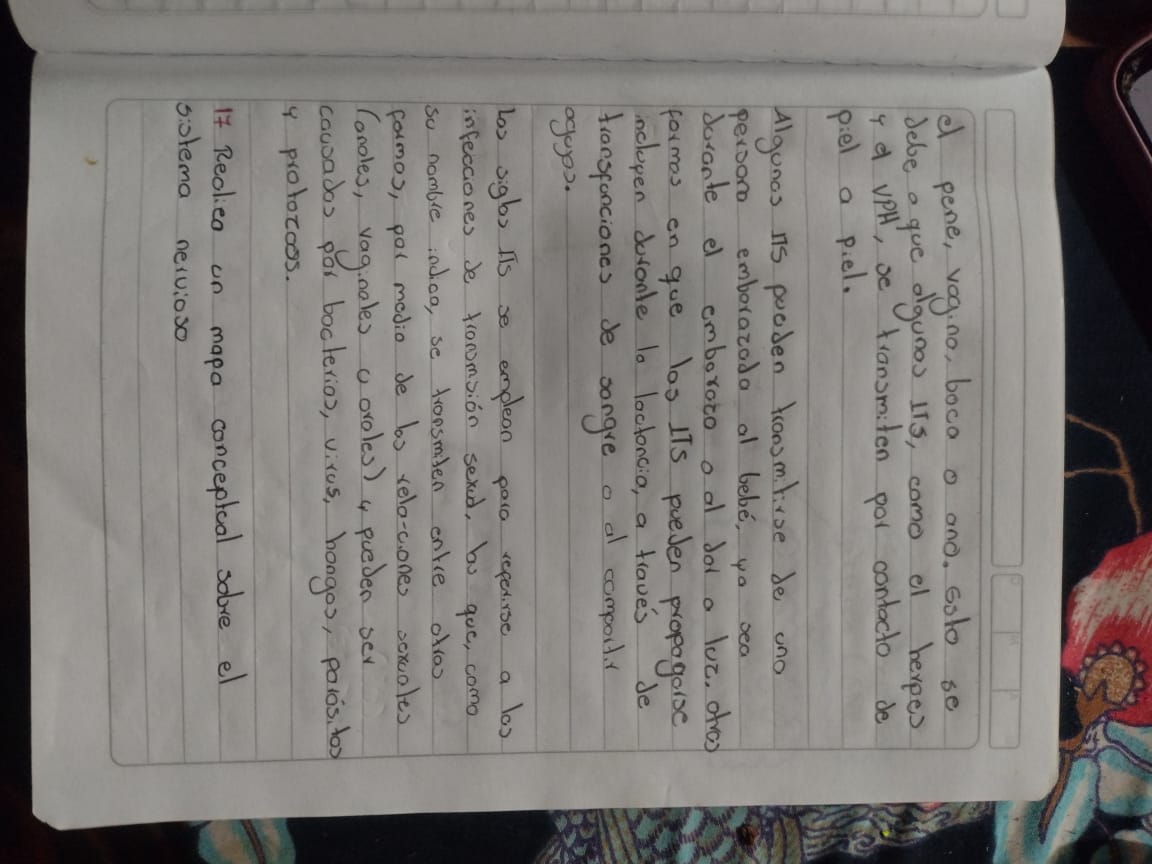 el pene, vagina, boca o ano. Esto se
debe a que algunas ITS, como el herpes
y el VPH, se transmiten por contacto de
piel a piel.
Algunas ITS pueden transmitirse de una
persona embarazada al bebé, ya sea
durante el embarazo o al dar a luz. otras
formas en que las ITS pueden propagarse
incluyen durante la lactancia, a través de
transpunciones de sangre o al compartir
agujas.
las siglas ITS se emplean para referirse a las
infecciones de transmisión sexual, las que, como
su nombre indica, se transmiten entre otras
formas, por medio de las relaciones sexuales
(anales, vaginales u orales) y pueden ser
causadas por bacterias, virus, hongos, parásitos
y protozoos.
17 Realiza un mapa conceptual sobre el
sistema nervioso